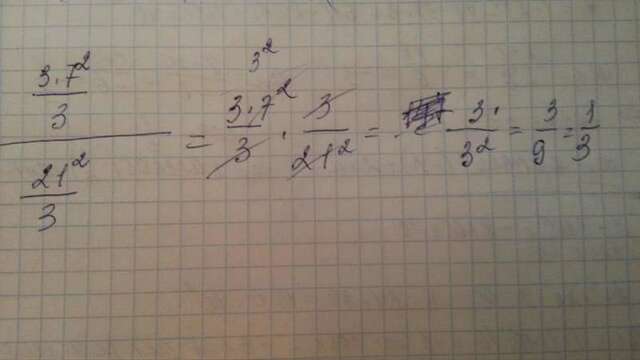 3²
(3·7²/3)/(21²/3) = 3·7²/3 · 3/21² = 3·/3² = 3/9 = 1/3